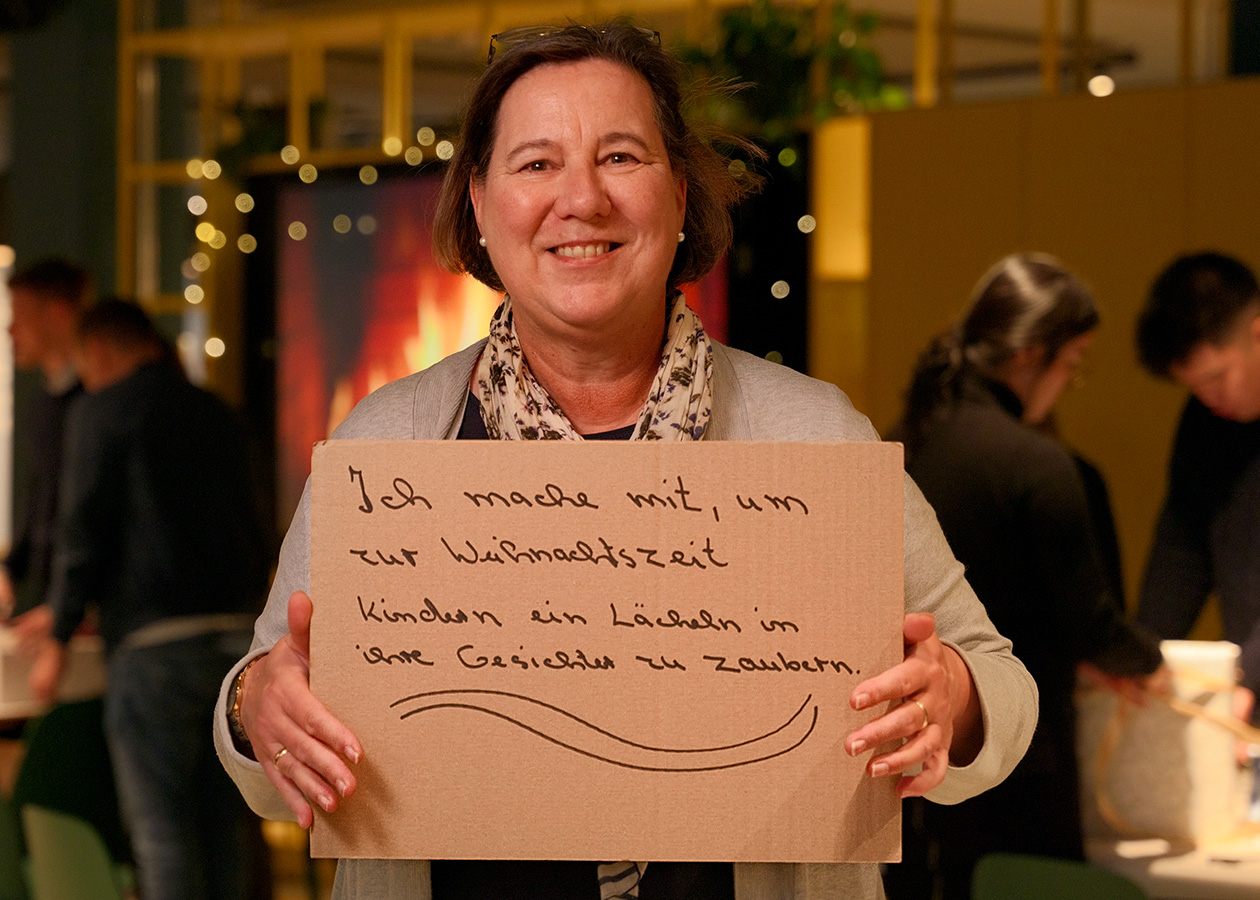 Ich mache mit, um
zur Weihnachtszeit
Kindern ein Lächeln in
ihre Gesichter zu zaubern.